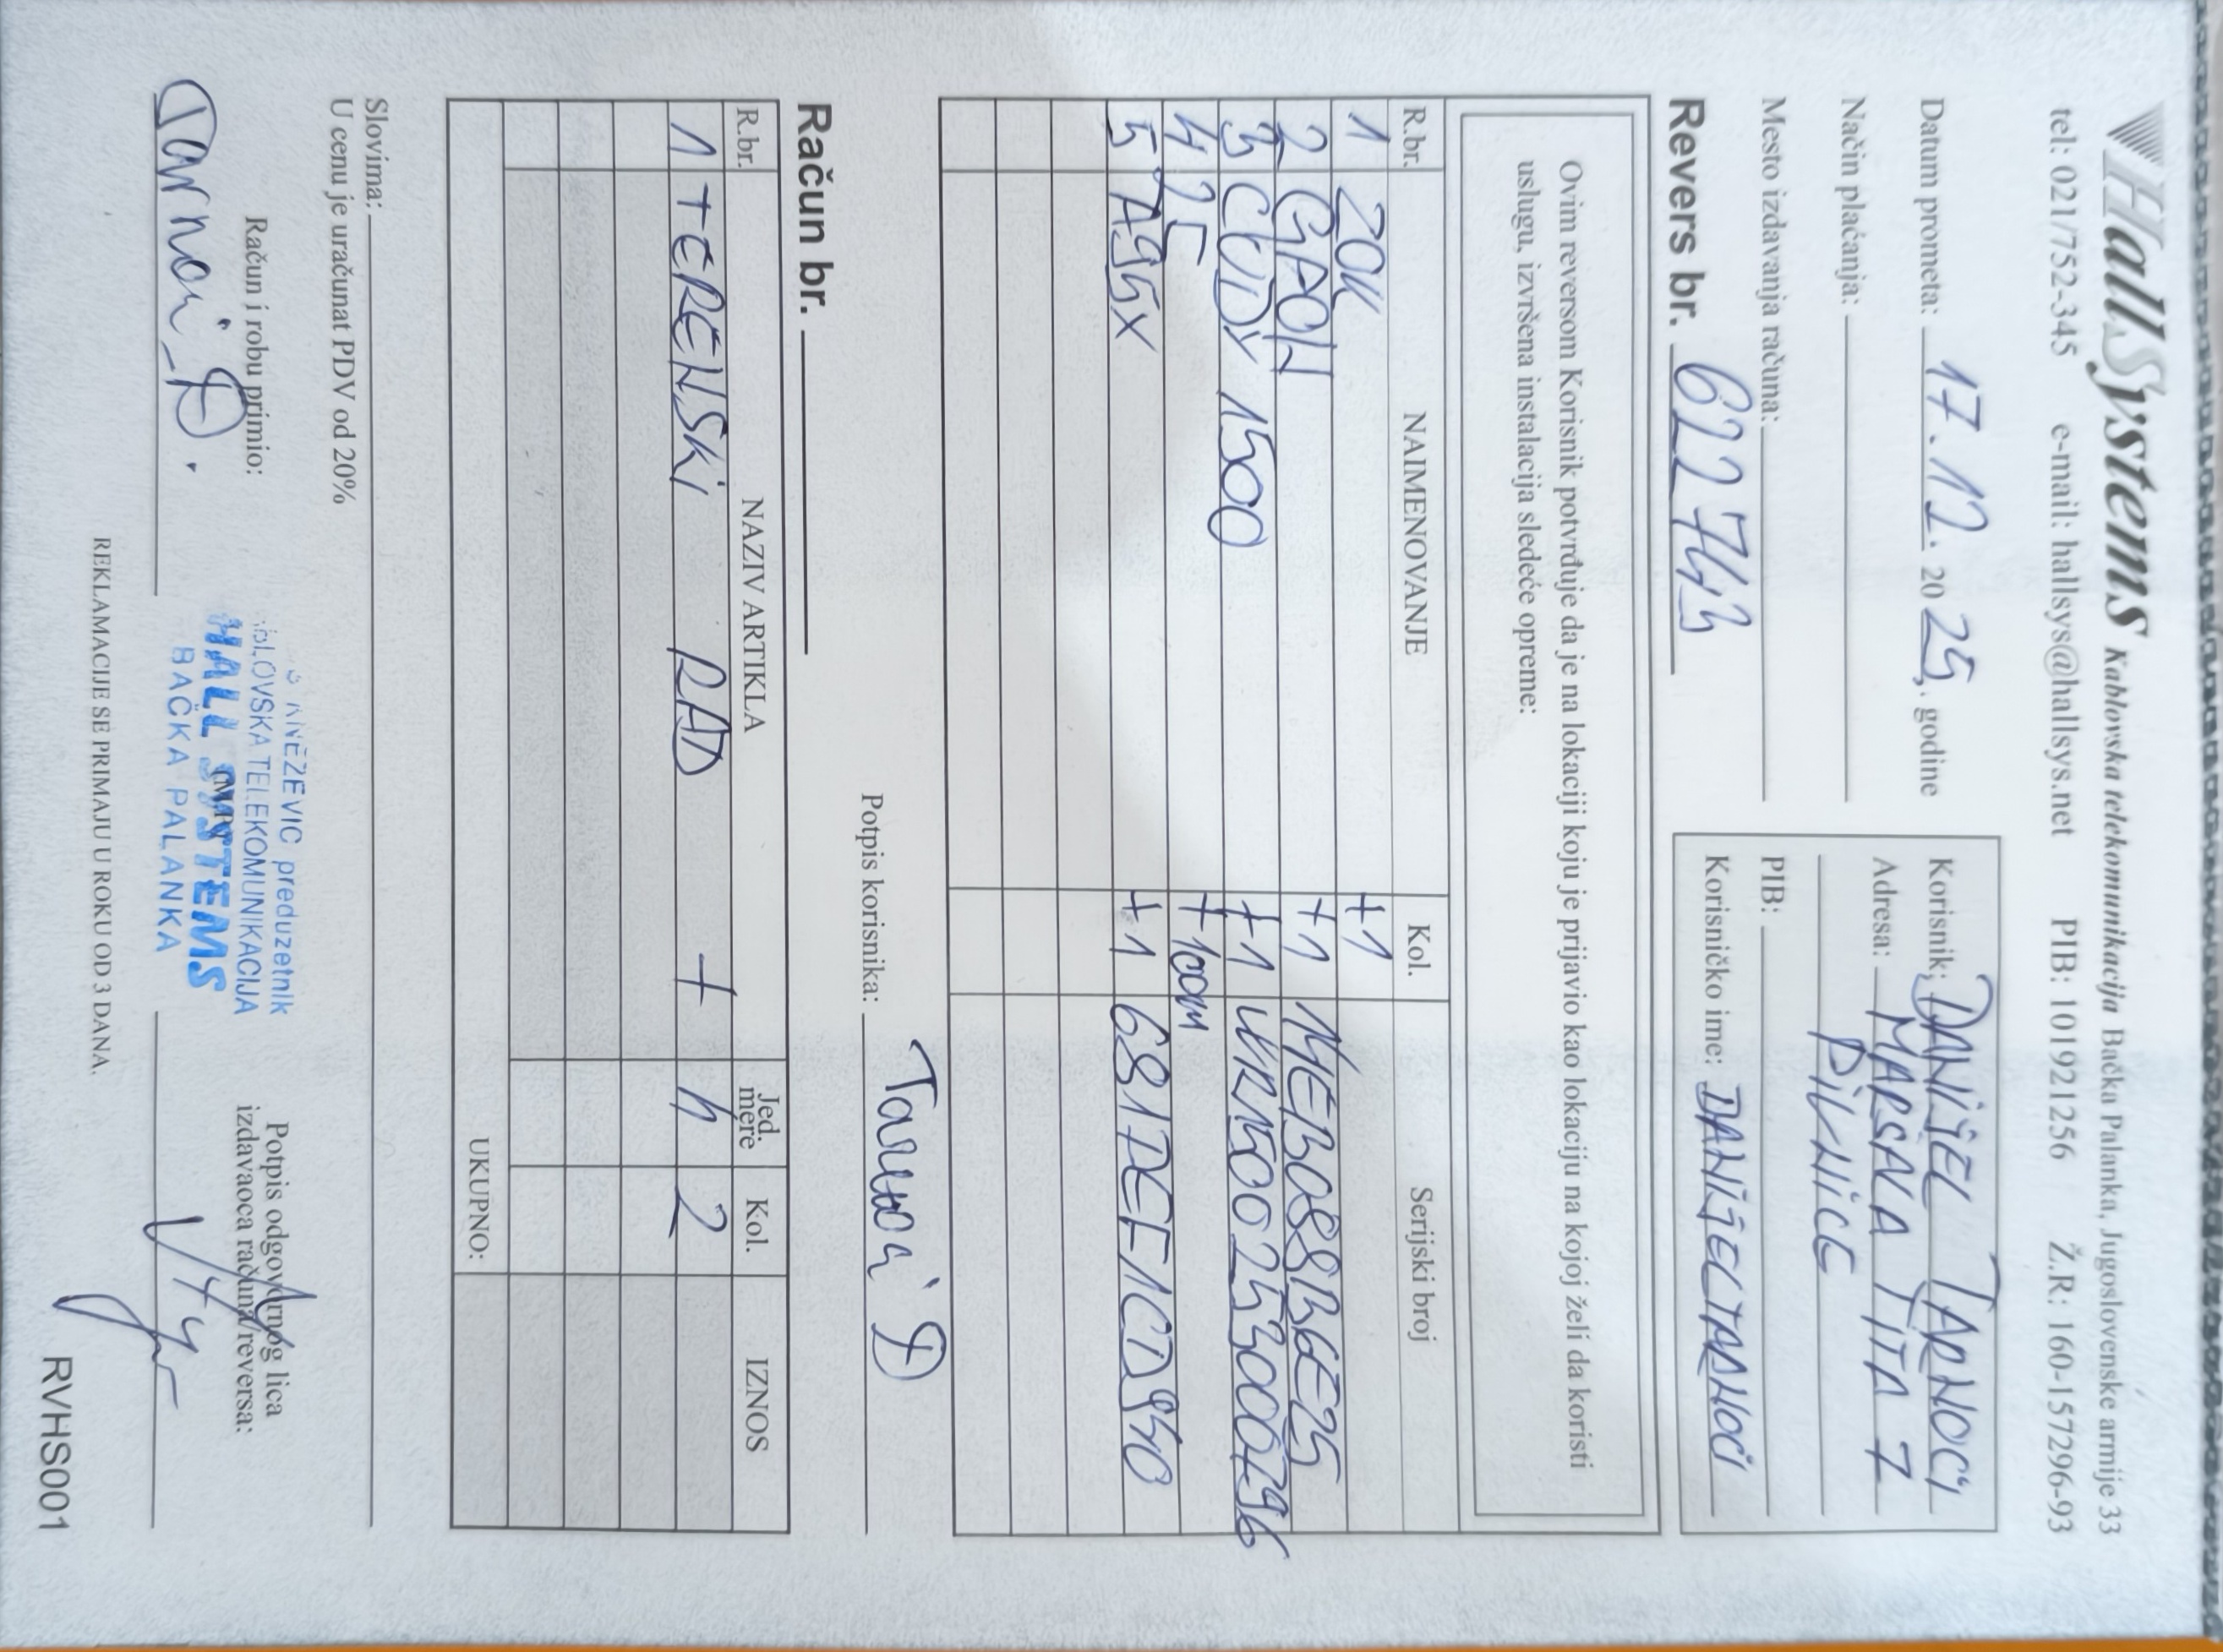 HallSystems Kablovska telekomunikacija Bačka Palanka, Jugoslovenske armije 33
tel: 021/752-345 e-mail: hallsys@hallsys.net PIB: 101921256 Ž.R: 160-157296-93
Datum prometa: 17.12. 2025. godine
Način plaćanja:
Mesto izdavanja računa:
Revers br. 622743
Korisnik: DANIJEL TARNOCI
Adresa: MARŠALA TITA 7
PIVNICE
PIB:
Korisničko ime: DANIJELTARNOCI
Ovim reversom Korisnik potvrđuje da je na lokaciji koju je prijavio kao lokaciju na kojoj želi da koristi
uslugu, izvršena instalacija sledeće opreme:
R.br. NAIMENOVANJE Kol. Serijski broj
1 ZOK +1
2 GPON +1
3 CUDY 1500 +1 WR1500253000796
4 +100m
5 A95X +1 681DEF1CD940
Potpis korisnika: Tarnoci D
Račun br.
R.br. NAZIV ARTIKLA Jed. mere Kol. IZNOS
1 TERENSKI RAD + h 2
UKUPNO:
Slovima:
U cenu je uračunat PDV od 20%
Račun i robu primio:
Tarnoci D.
KNEŽEVIĆ preduzetnik
KABLOVSKA TELEKOMUNIKACIJA
HALL SYSTEMS
BAČKA PALANKA
(MP)
Potpis odgovornog lica
izdavaoca računa/reversa:
REKLAMACIJE SE PRIMAJU U ROKU OD 3 DANA.
RVHS001